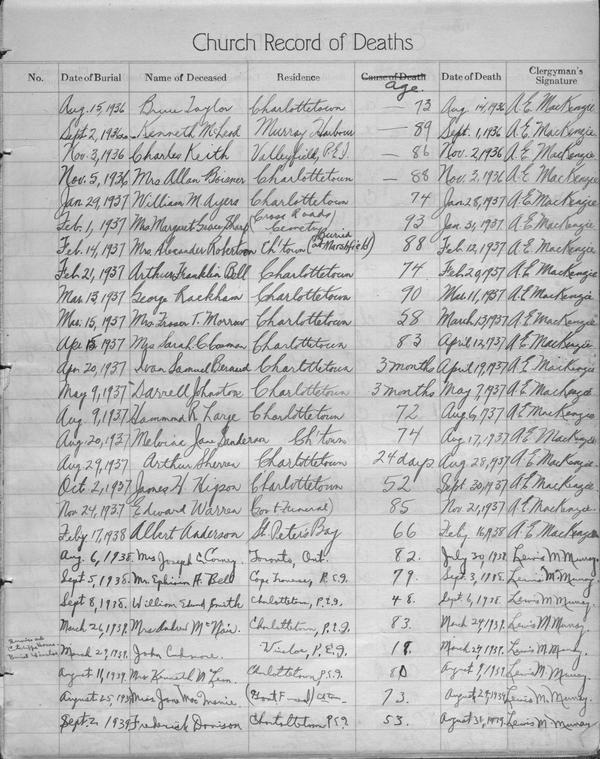 Church Record of Deaths
No. Date of Burial Name of Deceased Residence Cause of Death Date of Death Clergyman's Signature
age.
Aug. 15, 1936 Bruce Taylor Charlottetown — 73 Aug 14, 1936 A. E. MacKenzie
Sept. 2, 1936 Kenneth McLeod Murray Harbour — 89 Sept. 1, 1936 A. E. MacKenzie
Nov. 3, 1936 Charles Keith Valleyfield, P.E.I. — 86 Nov. 2, 1936 A. E. MacKenzie
Nov. 5, 1936 Mrs Allan Charlottetown — 88 Nov. 3, 1936 A. E. MacKenzie
Jan 29, 1937 William M Ayers Charlottetown 74 Jan 28, 1937 A. E. MacKenzie
Feb. 1, 1937 Mrs Margaret (Cross Roads Cemetery 93 Jan 31, 1937 A. E. MacKenzie
Feb. 14, 1937 Mrs Alexander Robertson Ch'town (Buried at Marshfield) 88 Feb 12, 1937 A. E. MacKenzie
Feb. 21, 1937 Arthur Franklin Bell Charlottetown 74 Feb 20, 1937 A. E. MacKenzie
Mar. 13, 1937 George Rackham Charlottetown 90 Mar. 11, 1937 A. E. MacKenzie
Mar. 15, 1937 Mrs Fraser T. Morrow Charlottetown 58 March 13, 1937 A. E. MacKenzie
Apr 13, 1937 Mrs Sarah Charlottetown 83 April 12, 1937 A. E. MacKenzie
Apr 20, 1937 Ivan Samuel Charlottetown 3 months April 19, 1937 A. E. MacKenzie
May 9, 1937 Darrell Johnston Charlottetown 3 months May 7, 1937 A. E. MacKenzie
Aug. 9, 1937 Hammond R Large Charlottetown 72 Aug. 6, 1937 A. E. MacKenzie
Aug. 20, 1937 Melvine Jane Henderson Ch'town 74 Aug 17, 1937 A. E. MacKenzie
Aug 29, 1937 Arthur Sherren Charlottetown 24 days Aug 28, 1937 A. E. MacKenzie
Oct. 2, 1937 James H Higson Charlottetown 52 Sept. 30, 1937 A. E. MacKenzie
Nov 24, 1937 Edward Warren (Govt Funeral) 85 Nov 21, 1937 A. E. MacKenzie
Feby 17, 1938 Albert Anderson St. Peter's Bay 66 Feby 16, 1938 A. E. MacKenzie
Aug. 6, 1938. Mrs Joseph C. Toronto, Ont. 82. July 30, 1938 Lewis M. Murray.
Sept 5, 1938. Mr. Ephriam A. Bell Cape Traverse, P.E.I. 79. Sept. 3, 1938. Lewis M. Murray.
Sept 8, 1938. William Edward Smith Charlottetown, P.E.I. 48. Sept 6, 1938. Lewis M. Murray.
March 26, 1939. Mrs Andrew McNair. Charlottetown, P.E.I. 83. March 24, 1939. Lewis M. Murray.
March 27, 1939. John P.E.I. Lewis M. Murray.
August 11, 1939. Mrs Kenneth Charlottetown, P.E.I. 80 August 9, 1939. Lewis M. Murray.
August 25, 1939 Miss Jane 73. August 24, 1939 Lewis M. Murray.
Sept. 2, 1939 Frederick Charlottetown P.E.I. 53. August 31, 1939. Lewis M. Murray